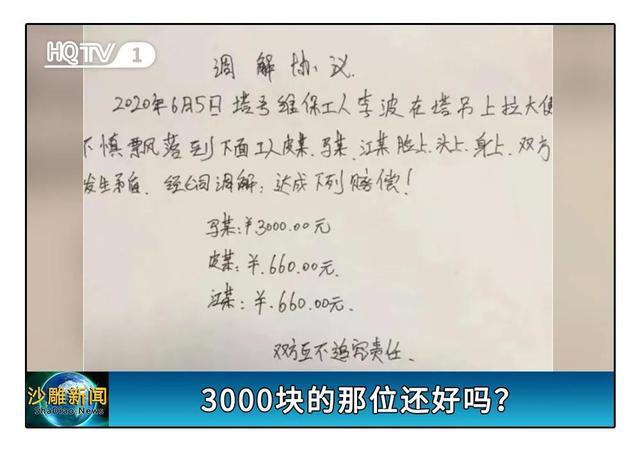 HQTV 1
调解协议
2020年6月5日塔吊维保工人李波在塔吊上拉大便
不慎飘落到下面工人皮某、马某、江某脸上、头上、身上、双方
发生矛盾、经公司调解：达成下列赔偿！
马某：¥3000.00元
皮某：¥.660.00元.
江某：¥.660.00元.
双方互不追究责任.
沙雕新闻
ShaDiao News
3000块的那位还好吗？